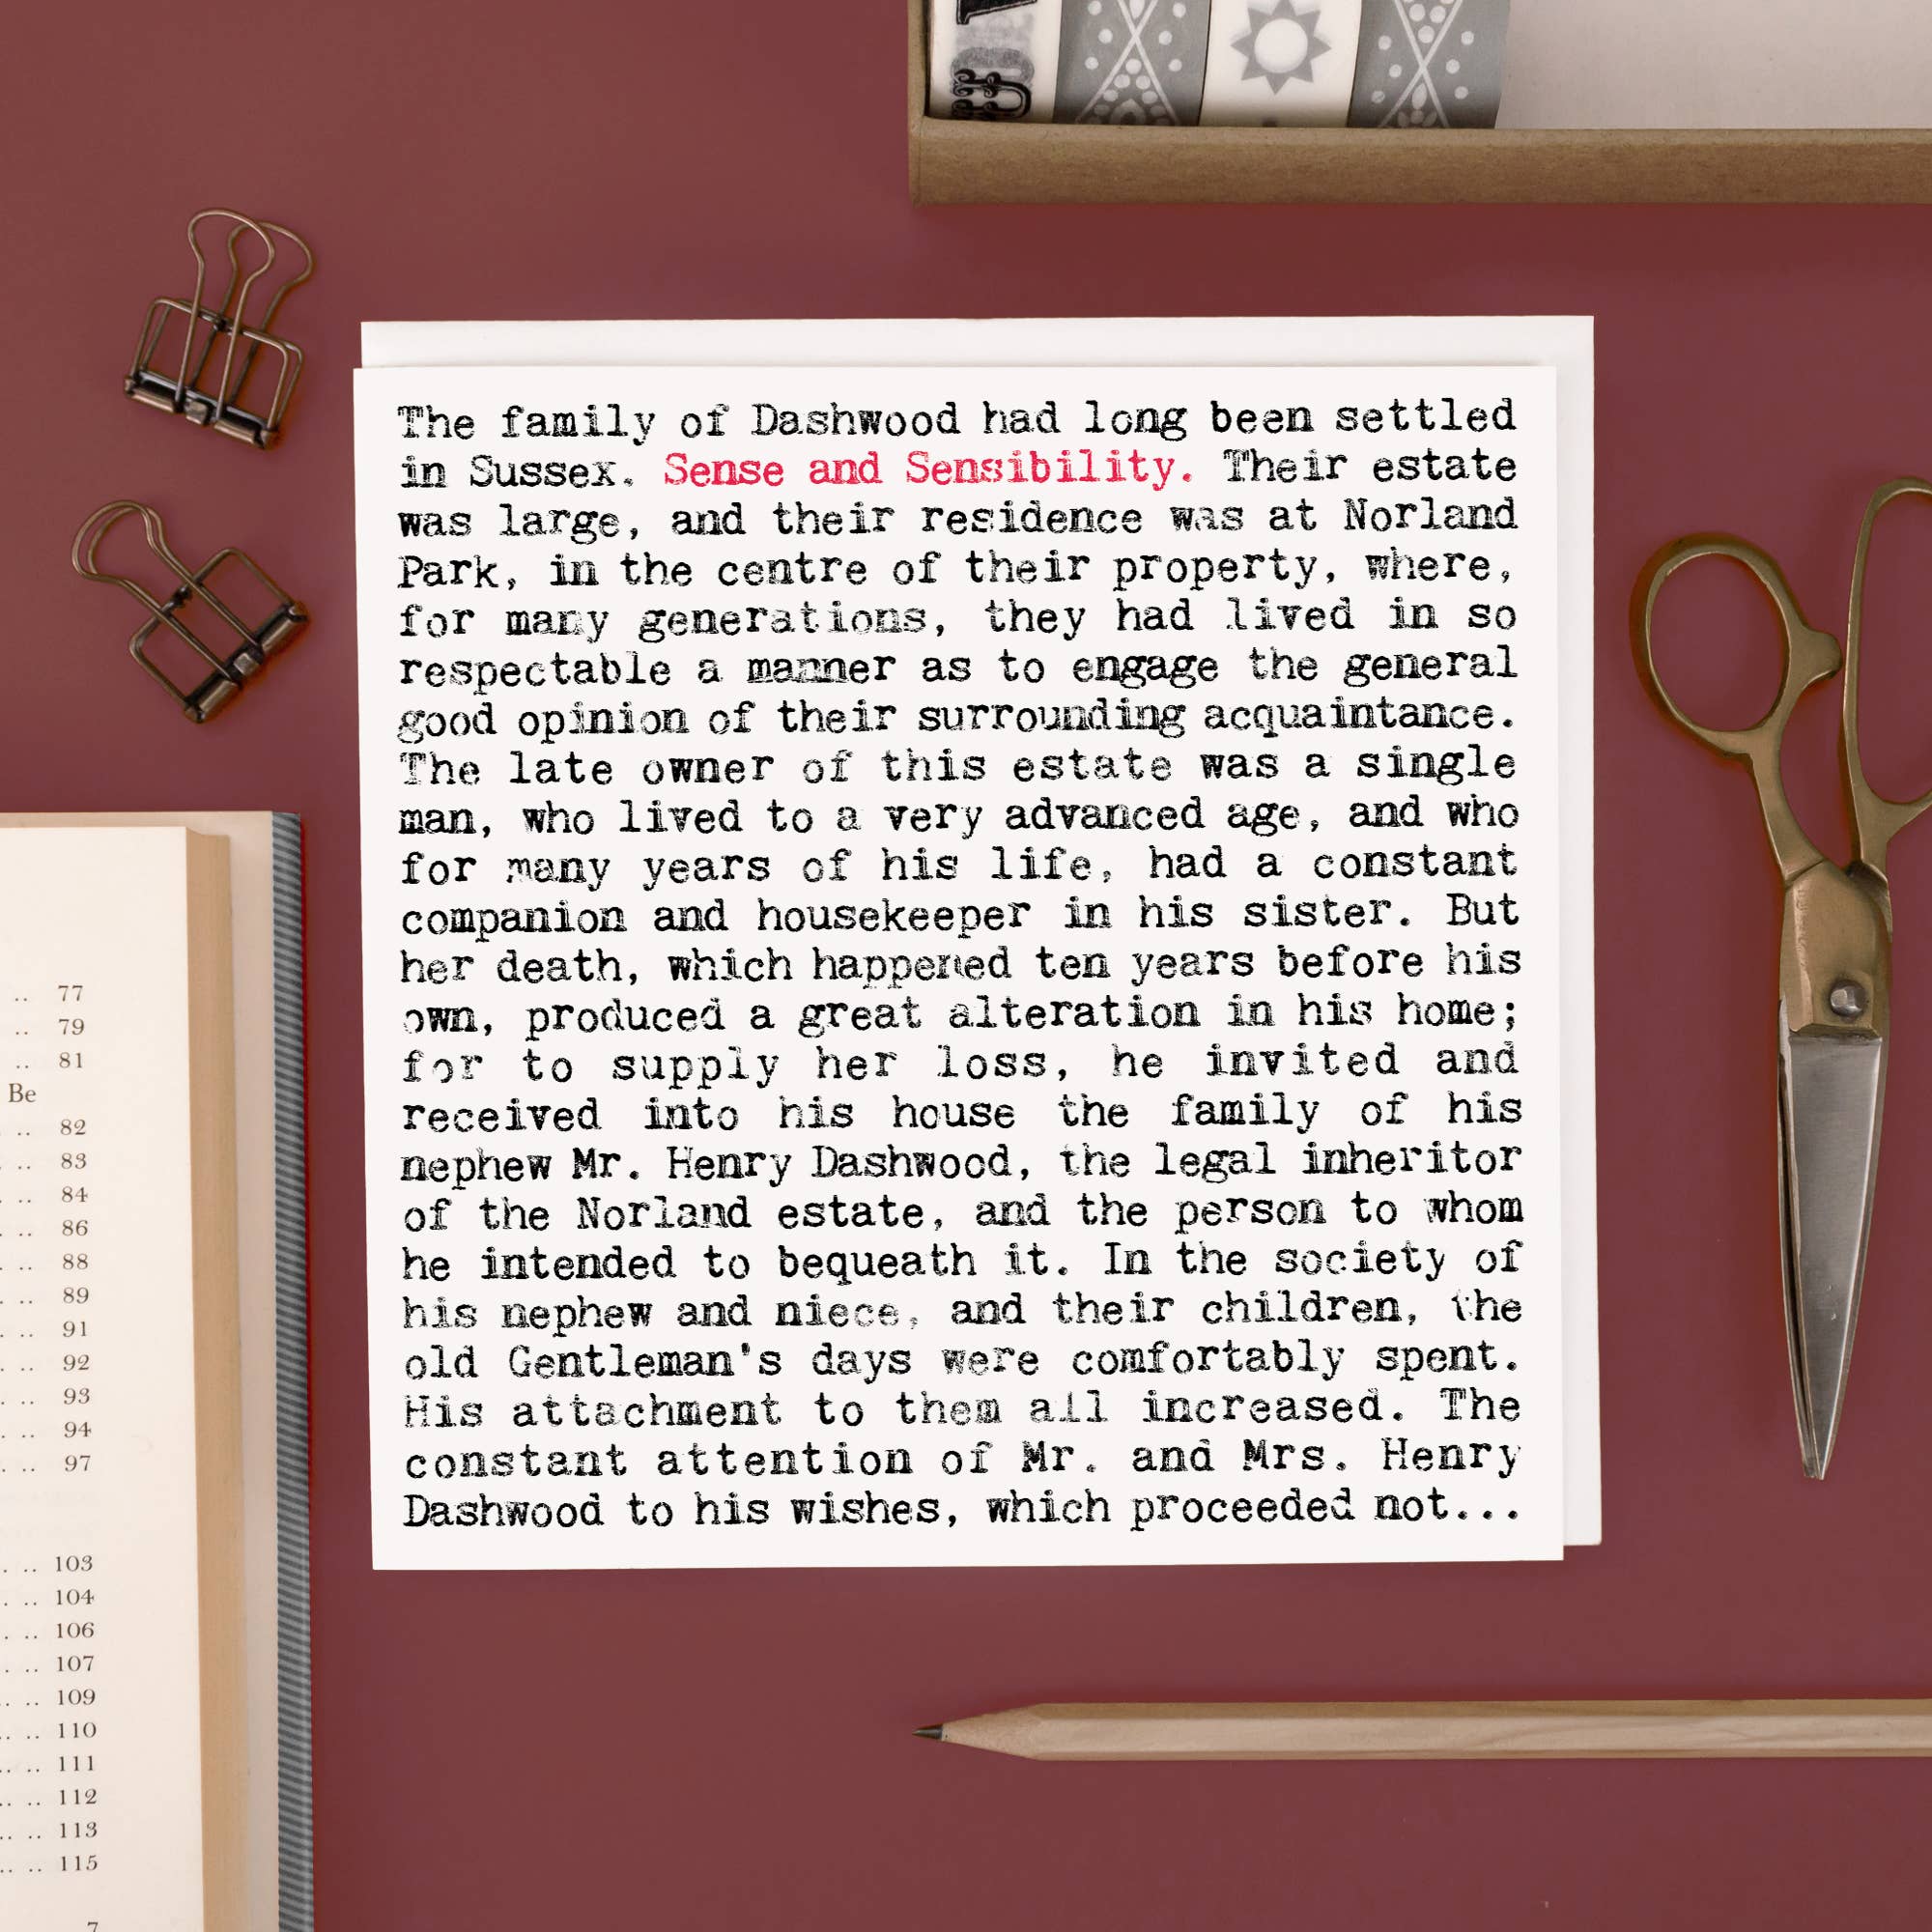 The family of Dashwood had long been settled
in Sussex. Sense and Sensibility. Their estate
was large, and their residence was at Norland
Park, in the centre of their property, where,
for many generations, they had lived in so
respectable a manner as to engage the general
good opinion of their surrounding acquaintance.
The late owner of this estate was a single
man, who lived to a very advanced age, and who
for many years of his life, had a constant
companion and housekeeper in his sister. But
her death, which happened ten years before his
own, produced a great alteration in his home;
for to supply her loss, he invited and
received into his house the family of his
nephew Mr. Henry Dashwood, the legal inheritor
of the Norland estate, and the person to whom
he intended to bequeath it. In the society of
his nephew and niece, and their children, the
old Gentleman's days were comfortably spent.
His attachment to them all increased. The
constant attention of Mr. and Mrs. Henry
Dashwood to his wishes, which proceeded not...
.. 77
.. 79
.. 81
Be
.. 82
. .. 83
. .. 84
. .. 86
. .. 88
. .. 89
. .. 91
. .. 92
. .. 93
. .. 94
. .. 97
. .. 103
. .. 104
. .. 106
. .. 107
.. .. 109
.. .. 110
.. .. 111
.. .. 112
.. .. 113
.. .. 115
7